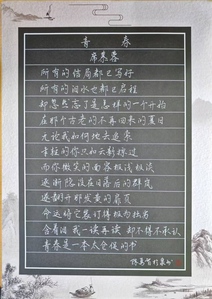 青春
席慕蓉
所有的结局都已写好
所有的泪水也都已启程
却忽然忘了是怎样的一个开始
在那个古老的不再回来的夏日
无论我如何地去追索
年轻的你只如云影掠过
而你微笑的面容极浅极淡
逐渐隐没在日落后的群岚
遂翻开那发黄的扉页
命运将它装订得极为拙劣
含着泪 我一读再读 却不得不承认
青春是一本太仓促的书